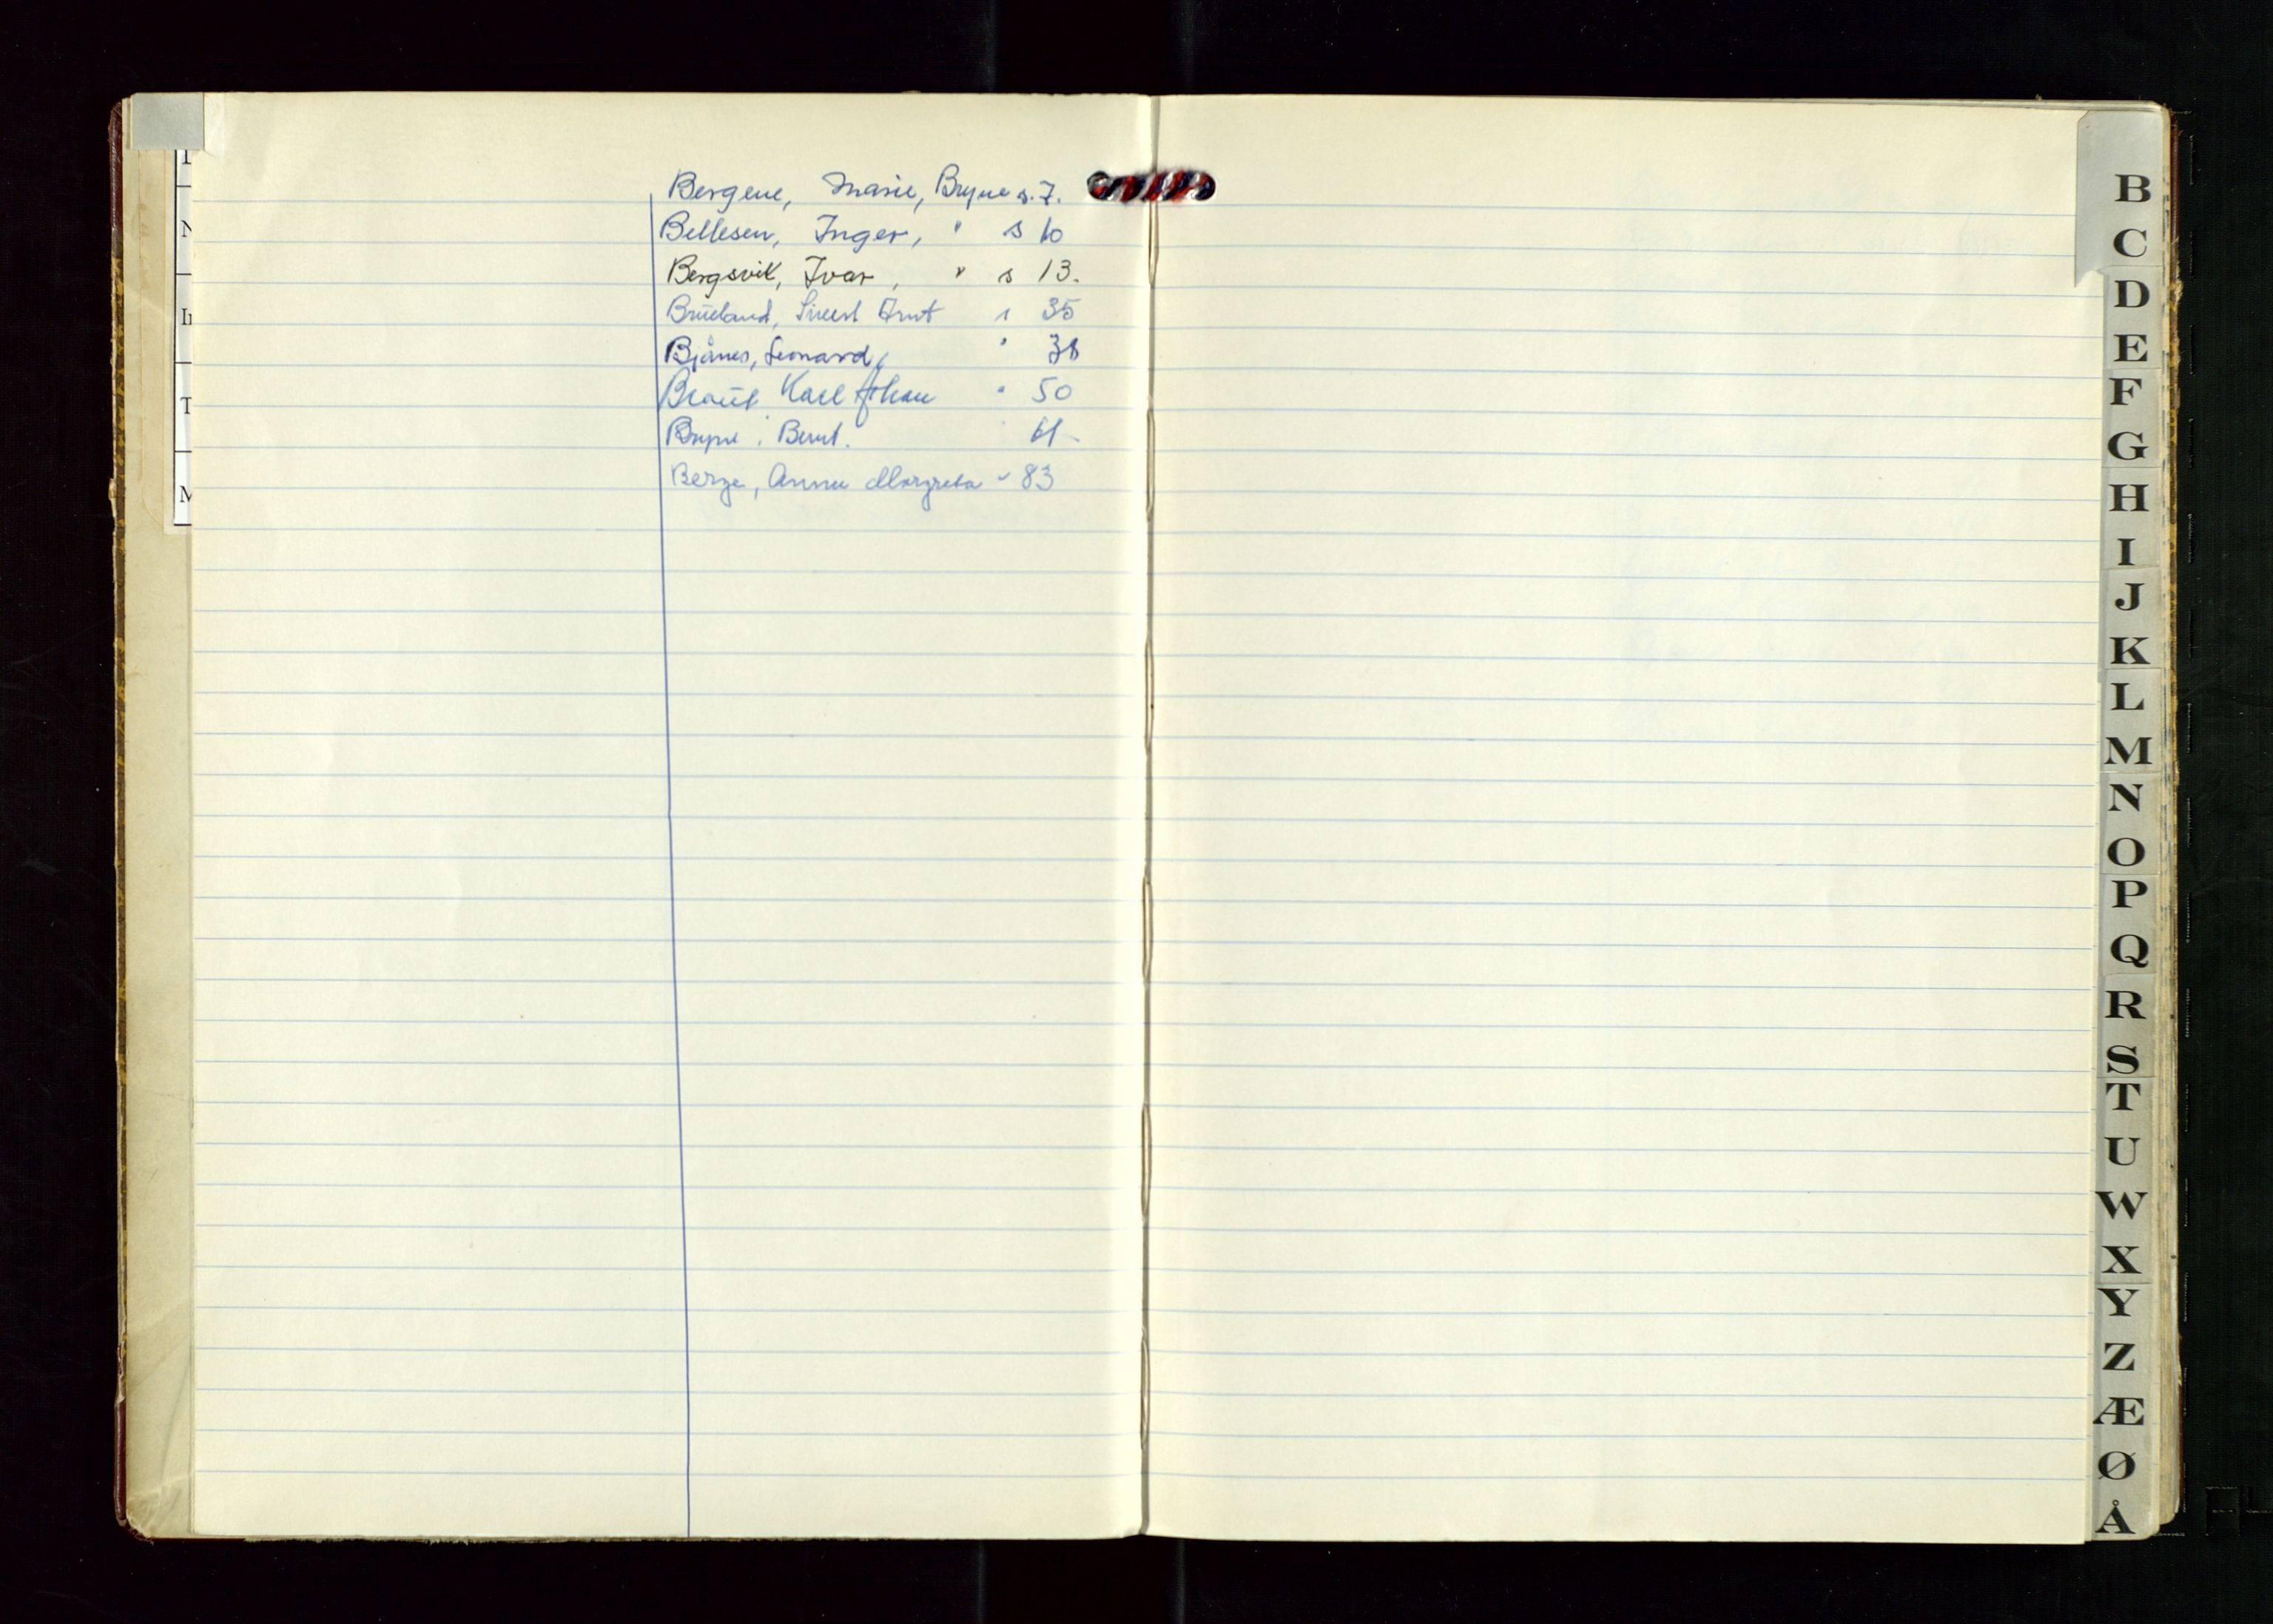 Bergene, Marie, Bryne s. 7.
Bellesen, Inger, " s 10
Bergsvik, Ivar, " s 13.
Brueland, Sivert Arnt s 35
Bjånes, Leonard, " 38
Braut Karl Johan " 50
Bryne, Bernt. " 61
Berge, Anna Margreta " 83
I
N
T
M
B
C
D
E
F
G
H
I
J
K
L
M
N
O
P
Q
R
S
T
U
W
X
Y
Z
Æ
Ø
Å